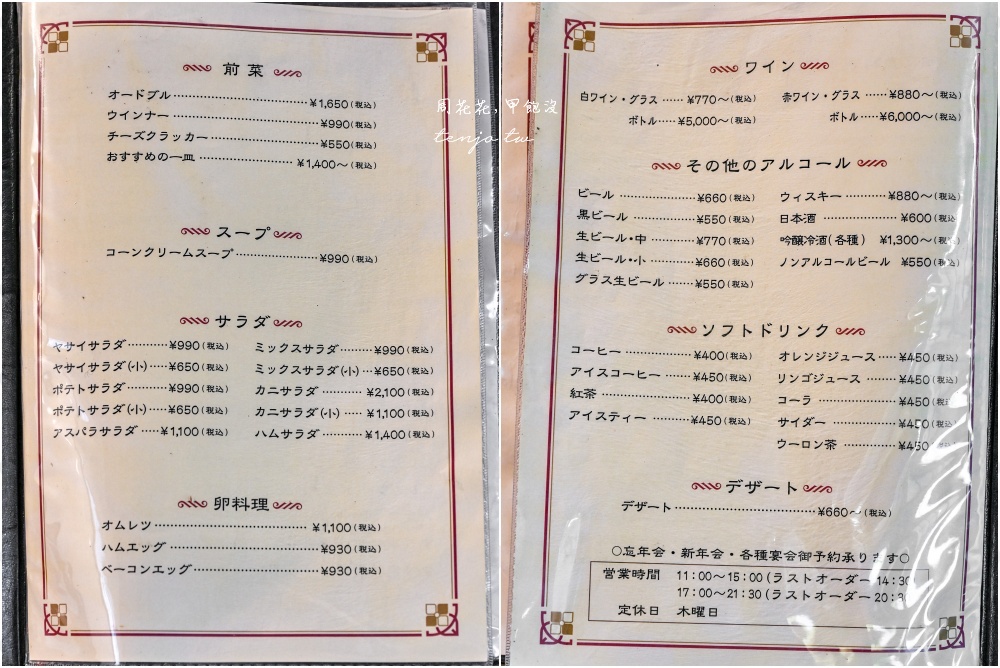 前菜
オードブル ¥1,650(税込)
ウインナー ¥990(税込)
チーズクラッカー ¥550(税込)
おすすめの一皿 ¥1,400〜(税込)
スープ
コーンクリームスープ ¥990(税込)
サラダ
ヤサイサラダ ¥990(税込) ミックスサラダ ¥990(税込)
ヤサイサラダ(小) ¥650(税込) ミックスサラダ(小) ¥650(税込)
ポテトサラダ ¥990(税込) カニサラダ ¥2,100(税込)
ポテトサラダ(小) ¥650(税込) カニサラダ(小) ¥1,100(税込)
アスパラサラダ ¥1,100(税込) ハムサラダ ¥1,400(税込)
卵料理
オムレツ ¥1,100(税込)
ハムエッグ ¥930(税込)
ベーコンエッグ ¥930(税込)
周花花,甲飽沒
tenjo.tw
ワイン
白ワイン・グラス ¥770〜(税込) 赤ワイン・グラス ¥880〜(税込)
ボトル ¥5,000〜(税込) ボトル ¥6,000〜(税込)
その他のアルコール
ビール ¥660(税込) ウィスキー ¥880〜(税込)
黒ビール ¥550(税込) 日本酒 ¥600(税込)
生ビール・中 ¥770(税込) 吟醸冷酒(各種) ¥1,300〜(税込)
生ビール・小 ¥660(税込) ノンアルコールビール ¥550(税込)
グラス生ビール ¥550(税込)
ソフトドリンク
コーヒー ¥400(税込) オレンジジュース ¥450(税込)
アイスコーヒー ¥450(税込) リンゴジュース ¥450(税込)
紅茶 ¥400(税込) コーラ ¥450(税込)
アイスティー ¥450(税込) サイダー ¥450(税込)
ウーロン茶 ¥450(税込)
デザート
デザート ¥660〜(税込)
○忘年会・新年会・各種宴会御予約承ります○
営業時間 11:00〜15:00(ラストオーダー 14:30)
17:00〜21:30(ラストオーダー 20:3
定休日 木曜日